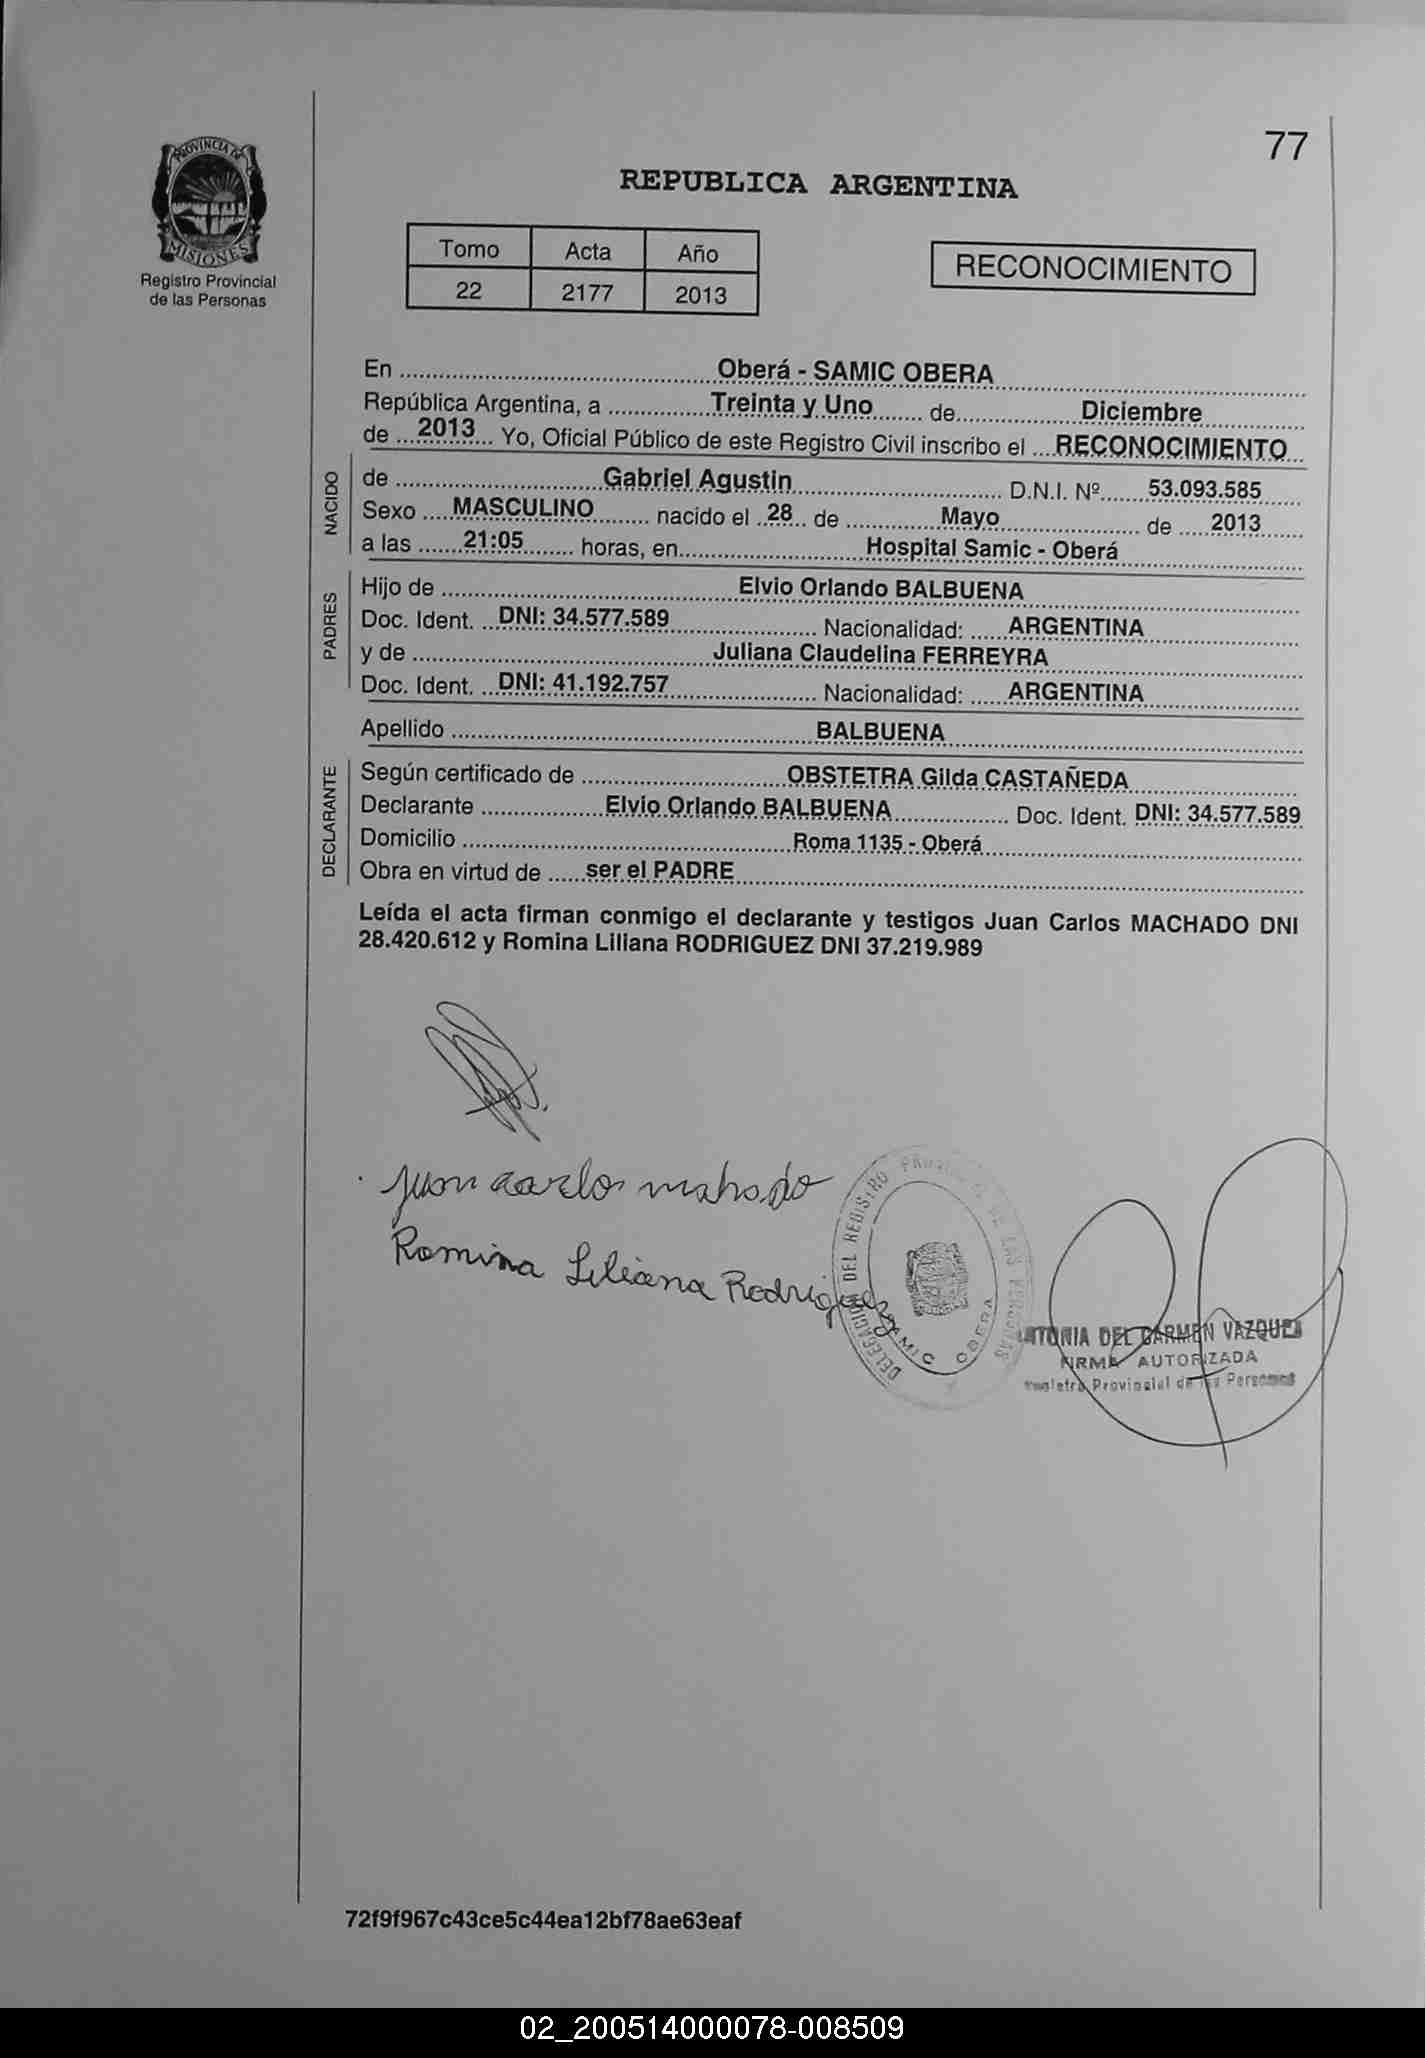 77
PROVINCIA DE
MISIONES
Registro Provincial
de las Personas
REPUBLICA ARGENTINA
Tomo Acta Año
22 2177 2013
RECONOCIMIENTO
En Oberá - SAMIC OBERA
República Argentina, a Treinta y Uno de Diciembre
de 2013 Yo, Oficial Público de este Registro Civil inscribo el RECONOCIMIENTO
NACIDO
de Gabriel Agustin D.N.I. Nº 53.093.585
Sexo MASCULINO nacido el 28 de Mayo de 2013
a las 21:05 horas, en Hospital Samic - Oberá
PADRES
Hijo de Elvio Orlando BALBUENA
Doc. Ident. DNI: 34.577.589 Nacionalidad: ARGENTINA
y de Juliana Claudelina FERREYRA
Doc. Ident. DNI: 41.192.757 Nacionalidad: ARGENTINA
Apellido BALBUENA
DECLARANTE
Según certificado de OBSTETRA Gilda CASTAÑEDA
Declarante Elvio Orlando BALBUENA Doc. Ident. DNI: 34.577.589
Domicilio Roma 1135 - Oberá
Obra en virtud de ser el PADRE
Leída el acta firman conmigo el declarante y testigos Juan Carlos MACHADO DNI
28.420.612 y Romina Liliana RODRIGUEZ DNI 37.219.989
Juan carlos mahado
Romina Liliana Rodriguez
DELEGACION DEL REGISTRO PROVINCIAL DE LAS PERSONAS
SAMIC OBERA
DEL CARMEN VAZQUEZ
FIRMA AUTORIZADA
Registro Provincial de las Personas
72f9f967c43ce5c44ea12bf78ae63eaf
02_200514000078-008509